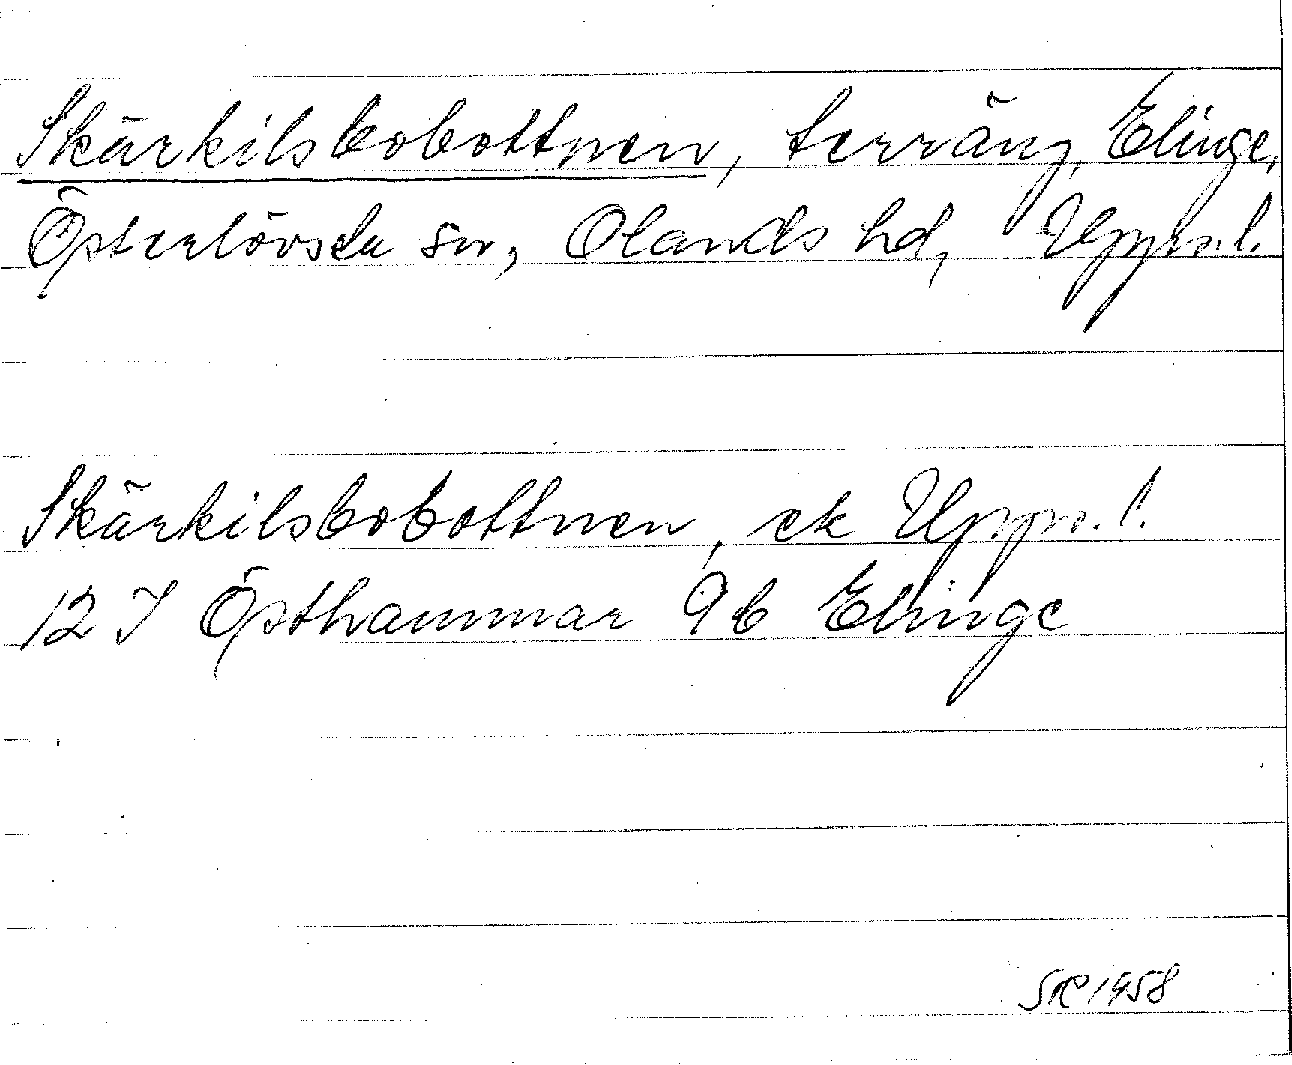 Skärkilsbobottnen, terräng, Elinge,
Österlövsta sn, Olands hd, Upps.l.
Skärkilsbobottnen, ek Upps.l.
12 I Östhammar 9b Elinge
SR 1958